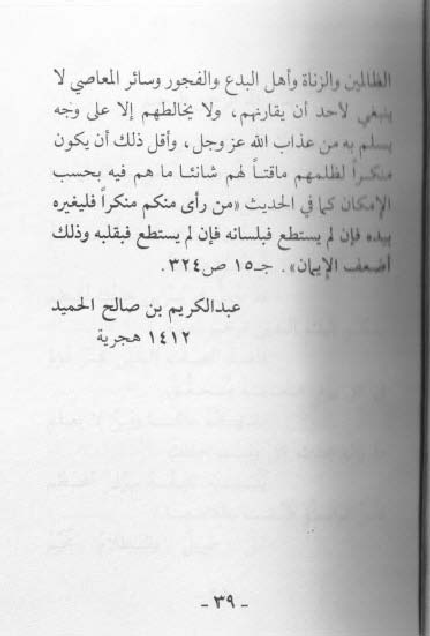 الظالمين والزناة وأهل البدع والفجور وسائر المعاصي لا
ينبغي لأحد أن يقارنهم، ولا يخالطهم إلا على وجه
يسلم به من عذاب الله عز وجل، وأقل ذلك أن يكون
منكراً لظلمهم ماقتاً لهم شانئا ما هم فيه بحسب
الإمكان كما في الحديث «من رأى منكم منكراً فليغيره
بيده فإن لم يستطع فبلسانه فإن لم يستطع فبقلبه وذلك
أضعف الإيمان». جـ١٥ ص٣٢٤.
عبدالكريم بن صالح الحميد
١٤١٢ هجرية
- ٣٩ -